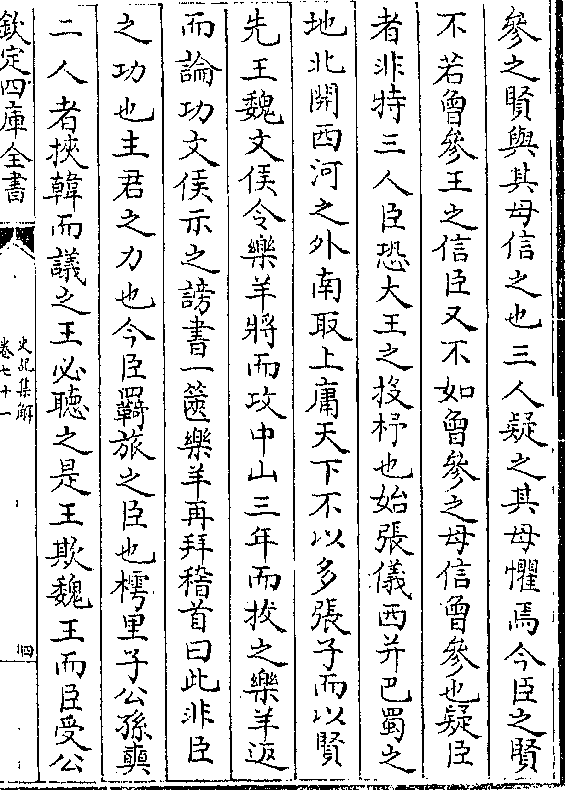 參之賢與其母信之也三人疑之其母懼焉今臣之賢
不若曾參王之信臣又不如曾參之母信曾參也疑臣
者非特三人臣恐大王之投杼也始張儀西并巴蜀之
地北開西河之外南取上庸天下不以多張子而以賢
先王魏文侯令樂羊將而攻中山三年而拔之樂羊返
而論功文侯示之謗書一篋樂羊再拜稽首曰此非臣
之功也主君之力也今臣羈旅之臣也樗里子公孫奭
二人者挾韓而議之王必聽之是王欺魏王而臣受公
欽定四庫全書
史記集解
卷七十一
四